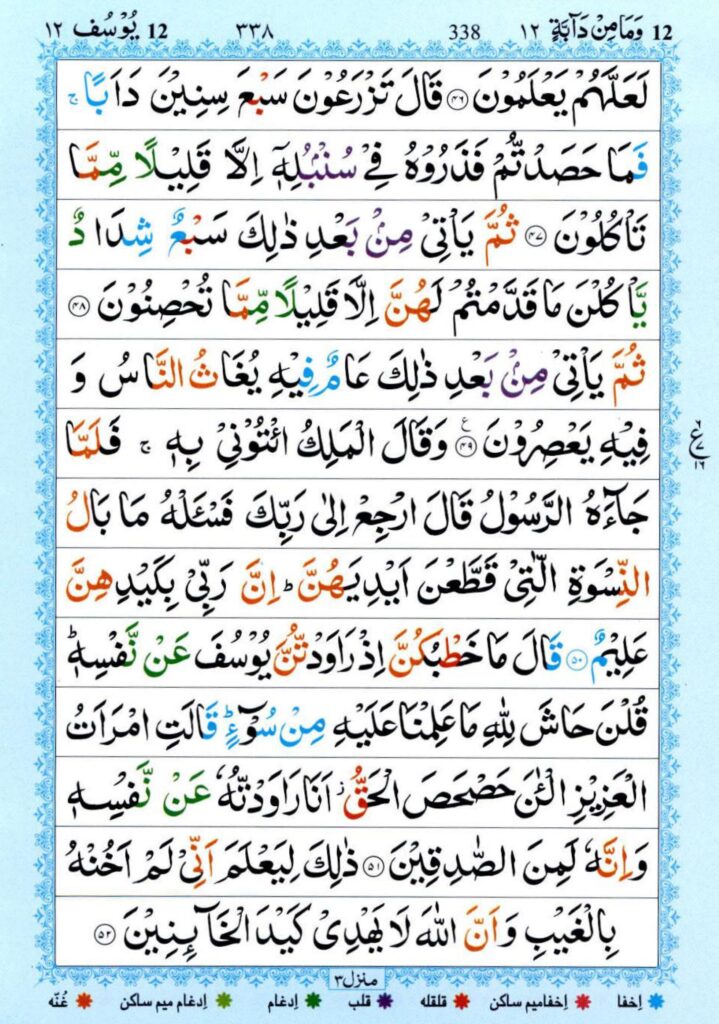 12 وَمَا مِنْ دَآبَّةٍ ١٢ 338 ٣٣٨ 12 يُوْسُف ١٢
لَعَلَّهُمْ يَعْلَمُوْنَ ﴿٤٦﴾ قَالَ تَزْرَعُوْنَ سَبْعَ سِنِيْنَ دَاَبًا ۚ
فَمَا حَصَدْتُّمْ فَذَرُوْهُ فِيْ سُنْۢبُلِهٖٓ اِلَّا قَلِيْلًا مِّمَّا
تَاْكُلُوْنَ ﴿٤٧﴾ ثُمَّ يَاْتِيْ مِنْۢ بَعْدِ ذٰلِكَ سَبْعٌ شِدَادٌ
يَّاْكُلْنَ مَا قَدَّمْتُمْ لَهُنَّ اِلَّا قَلِيْلًا مِّمَّا تُحْصِنُوْنَ ﴿٤٨﴾
ثُمَّ يَاْتِيْ مِنْۢ بَعْدِ ذٰلِكَ عَامٌ فِيْهِ يُغَاثُ النَّاسُ وَ
فِيْهِ يَعْصِرُوْنَ ﴿٤٩﴾ ع وَقَالَ الْمَلِكُ ائْتُوْنِيْ بِهٖ ۚ فَلَمَّا
جَآءَهُ الرَّسُوْلُ قَالَ ارْجِعْ اِلٰى رَبِّكَ فَسْـَٔلْهُ مَا بَالُ
النِّسْوَةِ الّٰتِيْ قَطَّعْنَ اَيْدِيَهُنَّ ؕ اِنَّ رَبِّيْ بِكَيْدِهِنَّ
عَلِيْمٌ ﴿٥٠﴾ قَالَ مَا خَطْبُكُنَّ اِذْ رَاوَدْتُّنَّ يُوْسُفَ عَنْ نَّفْسِهٖ ؕ
قُلْنَ حَاشَ لِلّٰهِ مَا عَلِمْنَا عَلَيْهِ مِنْ سُوْٓءٍ ؕ قَالَتِ امْرَاَتُ
الْعَزِيْزِ الْـٰٔنَ حَصْحَصَ الْحَقُّ ۫ اَنَا رَاوَدْتُّهٗ عَنْ نَّفْسِهٖ
وَاِنَّهٗ لَمِنَ الصّٰدِقِيْنَ ﴿٥١﴾ ذٰلِكَ لِيَعْلَمَ اَنِّيْ لَمْ اَخُنْهُ
بِالْغَيْبِ وَاَنَّ اللّٰهَ لَا يَهْدِيْ كَيْدَ الْخَآئِنِيْنَ ﴿٥٢﴾
منزل ٣
اِخفا اِخفامیم ساکن قلقله قلب اِدغام اِدغام میم ساکن غُنّه